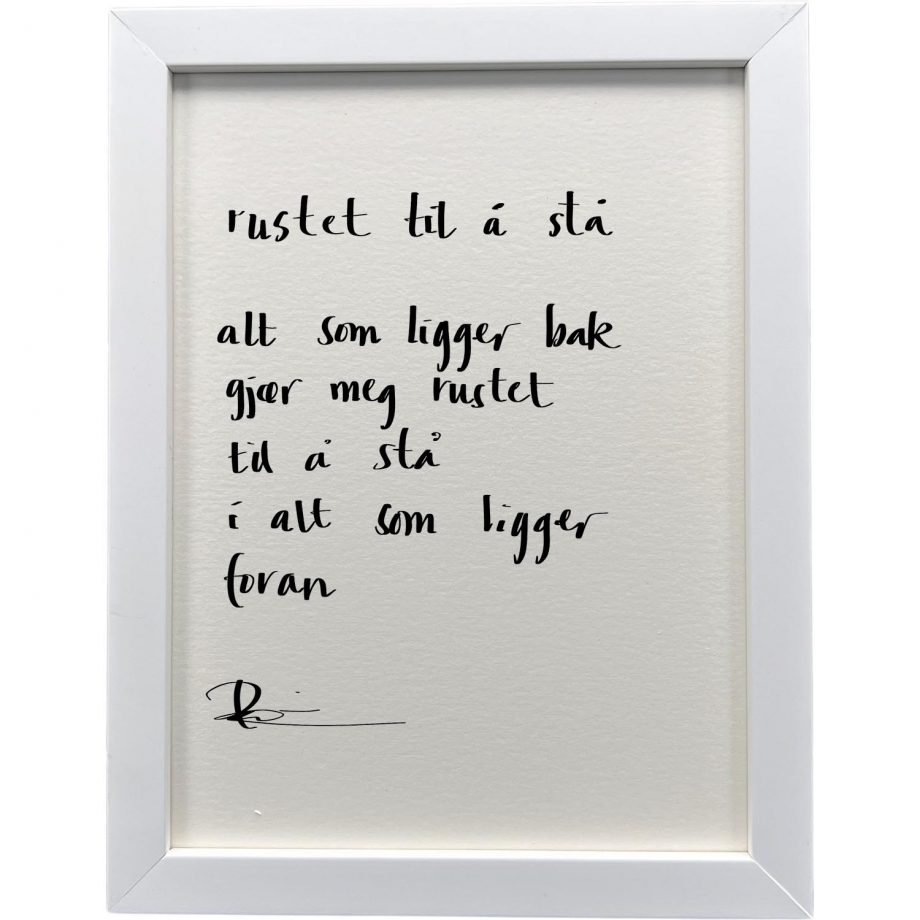 rustet til å stå
alt som ligger bak
gjør meg rustet
til å stå
i alt som ligger
foran